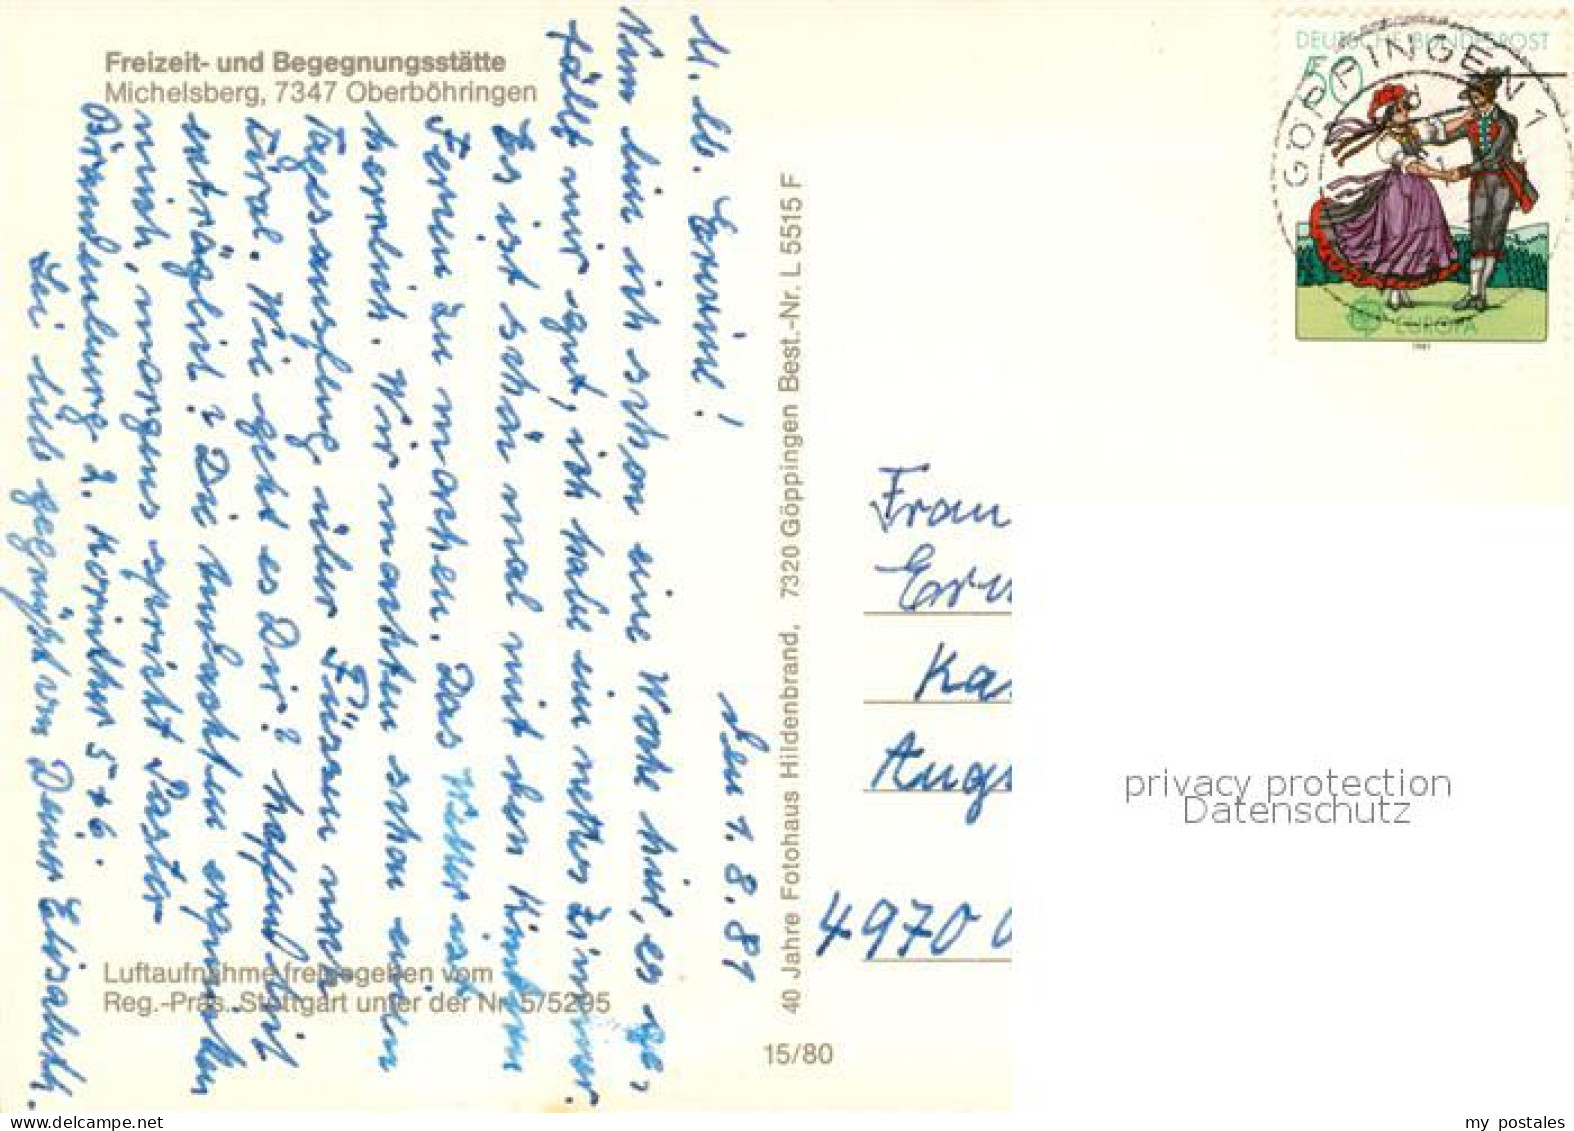 Freizeit- und Begegnungsstätte
Michelsberg, 7347 Oberböhringen
den 1.8.81
M. lb. Erwine!
Nun bin ich schon eine Woche hier, es ge-
fällt mir gut, ich habe ein nettes Zimmer.
Es ist schön mal mit den Kindern
Ferien zu machen. Das Wetter ist
herrlich. Wir machten schon einen
Tagesausflug über Füssen nach
Tirol. Wie geht es Dir? hoffentlich
erträglich? Die Andachten erquicken
mich, morgens spricht Pastor
Brandenburg 2. Korinther 5+6.
Sei lieb gegrüßt von Deiner Elisabeth.
Luftaufnahme freigegeben vom
Reg.-Präs. Stuttgart unter der Nr. 5/5295
40 Jahre Fotohaus Hildenbrand, 7320 Göppingen Best.-Nr. L 5515 F
15/80
DEUTSCHE BUNDESPOST
50
EUROPA
1981
GÖPPINGEN 1
Frau
Erw
Ka
Aug
4970
privacy protection
Datenschutz
my postales